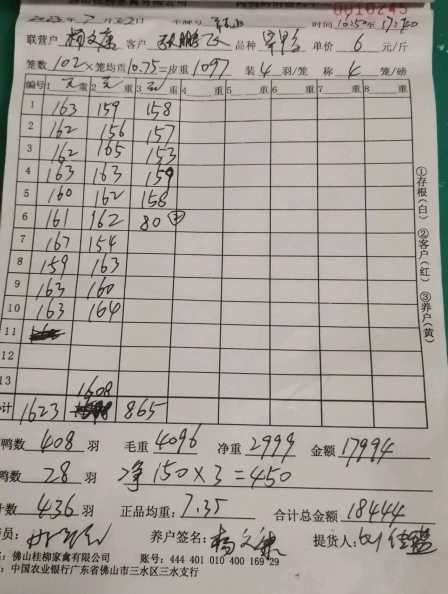 0010243
时间 10:50 17:40
联营户 杨文 客户 张鹏飞 品种 单价 6 元/斤
笼数 102 × 笼均重 10.75 = 皮重 1097 装 4 羽/笼 称 4 笼/磅
编号 1 毛重 2 毛重 3 毛重 4 重 5 重 6 重 7 重 8 重
1 163 159 158
2 162 156 157
3 162 165 153
4 163 163 159
5 160 162 158
6 161 162 80 ②
7 167 154
8 159 163
9 163 160
10 163 164
11
12
13 1608
计 1623 865
鸭数 408 羽 毛重 4096 净重 2999 金额 17994
鸭数 28 羽 净 150 × 3 = 450
计数 436 羽 正品均重: 7.35 合计总金额 18444
员: 养户签名: 杨文 提货人:
: 佛山桂柳家禽有限公司 账号: 444 401 010 400 169 29
: 中国农业银行广东省佛山市三水区三水支行
①存根(白) ②客户(红) ③养户(黄)